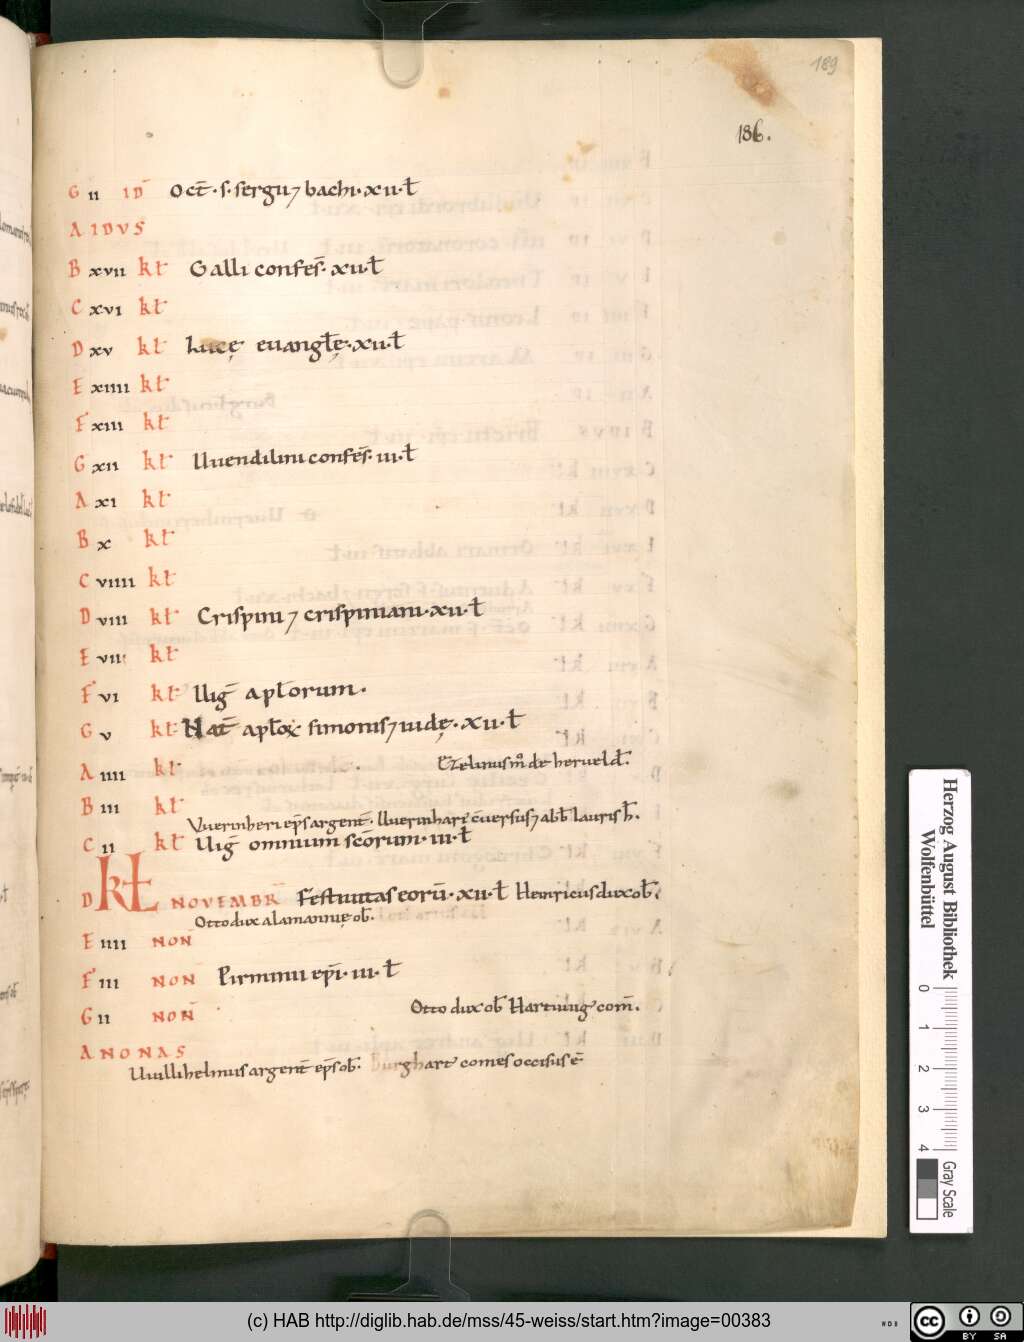 189
186.
G ii id̄ Oct̄ · s · sergii ⁊ bachi · xii · ł
A IDVS
B xvii kł Galli confes̄ · xii · ł
C xvi kł
D xv kł Lucę euanglę̄ · xii · ł
E xiiii kł
F xiii kł
G xii kł Uuendilini confes̄ · iii · ł
A xi kł
B x kł
C viiii kł
D viii kł Crispini ⁊ crispiniani · xii · ł
E vii kł
F vi kł Uiḡ aplorum .
G v kł Nat̄ aploꝝ simonis ⁊ iudę · xii · ł
A iiii kł Ezelinus m̊ de herueld̄ .
B iii kł
VVerinheri ep̄s argent̄ . Uuerinhart c̄uersus ⁊ abb̄ laurish̄ .
C ii kł Uiḡ omnium sc̄orum · iii · ł
D KŁ NOVEMBR̄ Festiuitas eorū · xii · ł Heinricus dux ob̄ .
Otto dux alamannię ob̄ .
E iiii NON̄
F iii NON̄ Pirminii ep̄i · iii · ł
G ii NON̄ Otto dux ob̄ Hartuuig com̄ .
A NONAS
Uuillihelmus argent̄ ep̄s ob̄ . Burghart comes occisus ē
Herzog August Bibliothek
Wolfenbüttel
0 1 2 3 4
Gray Scale
(c) HAB http://diglib.hab.de/mss/45-weiss/start.htm?image=00383
WDB
cc BY SA